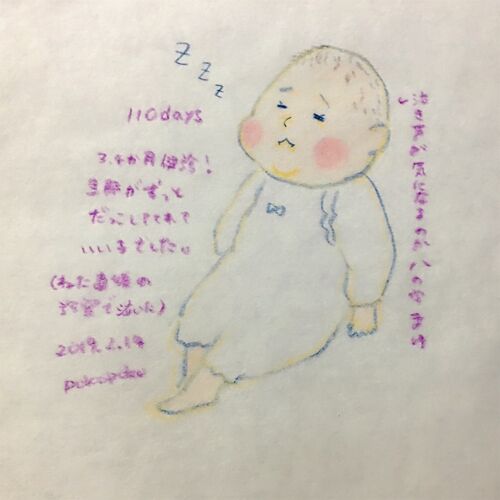 zzz
110days
3,4か月健診！
旦那がずっと
だっこしてくれて
いい子でした。
(ねた直後の
で泣いた)
2019.2.19
泣き声が気になるのか八の字まゆ